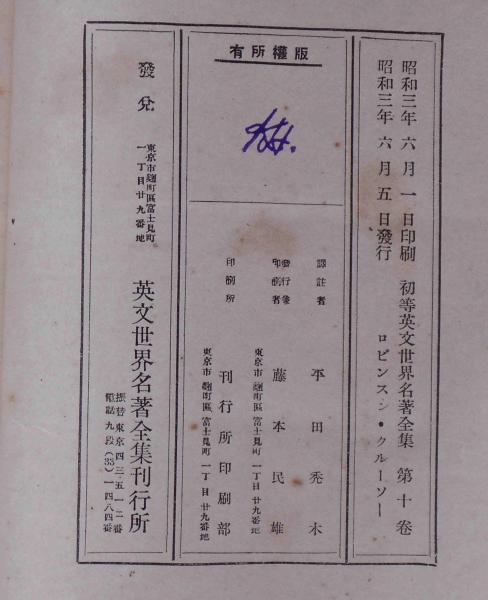 昭和三年六月一日印刷
昭和三年六月五日發行
初等英文世界名著全集 第十卷
ロビンスン・クルーソー
版權所有
譯註者 平田禿木
發行兼
印刷者 藤本民雄
東京市麴町區富士見町一丁目廿九番地
印刷所 刊行所印刷部
東京市麴町區富士見町一丁目廿九番地
發兌
東京市麴町區富士見町
一丁目廿九番地
英文世界名著全集刊行所
振替東京四三五一二番
電話九段(33)一四八四番